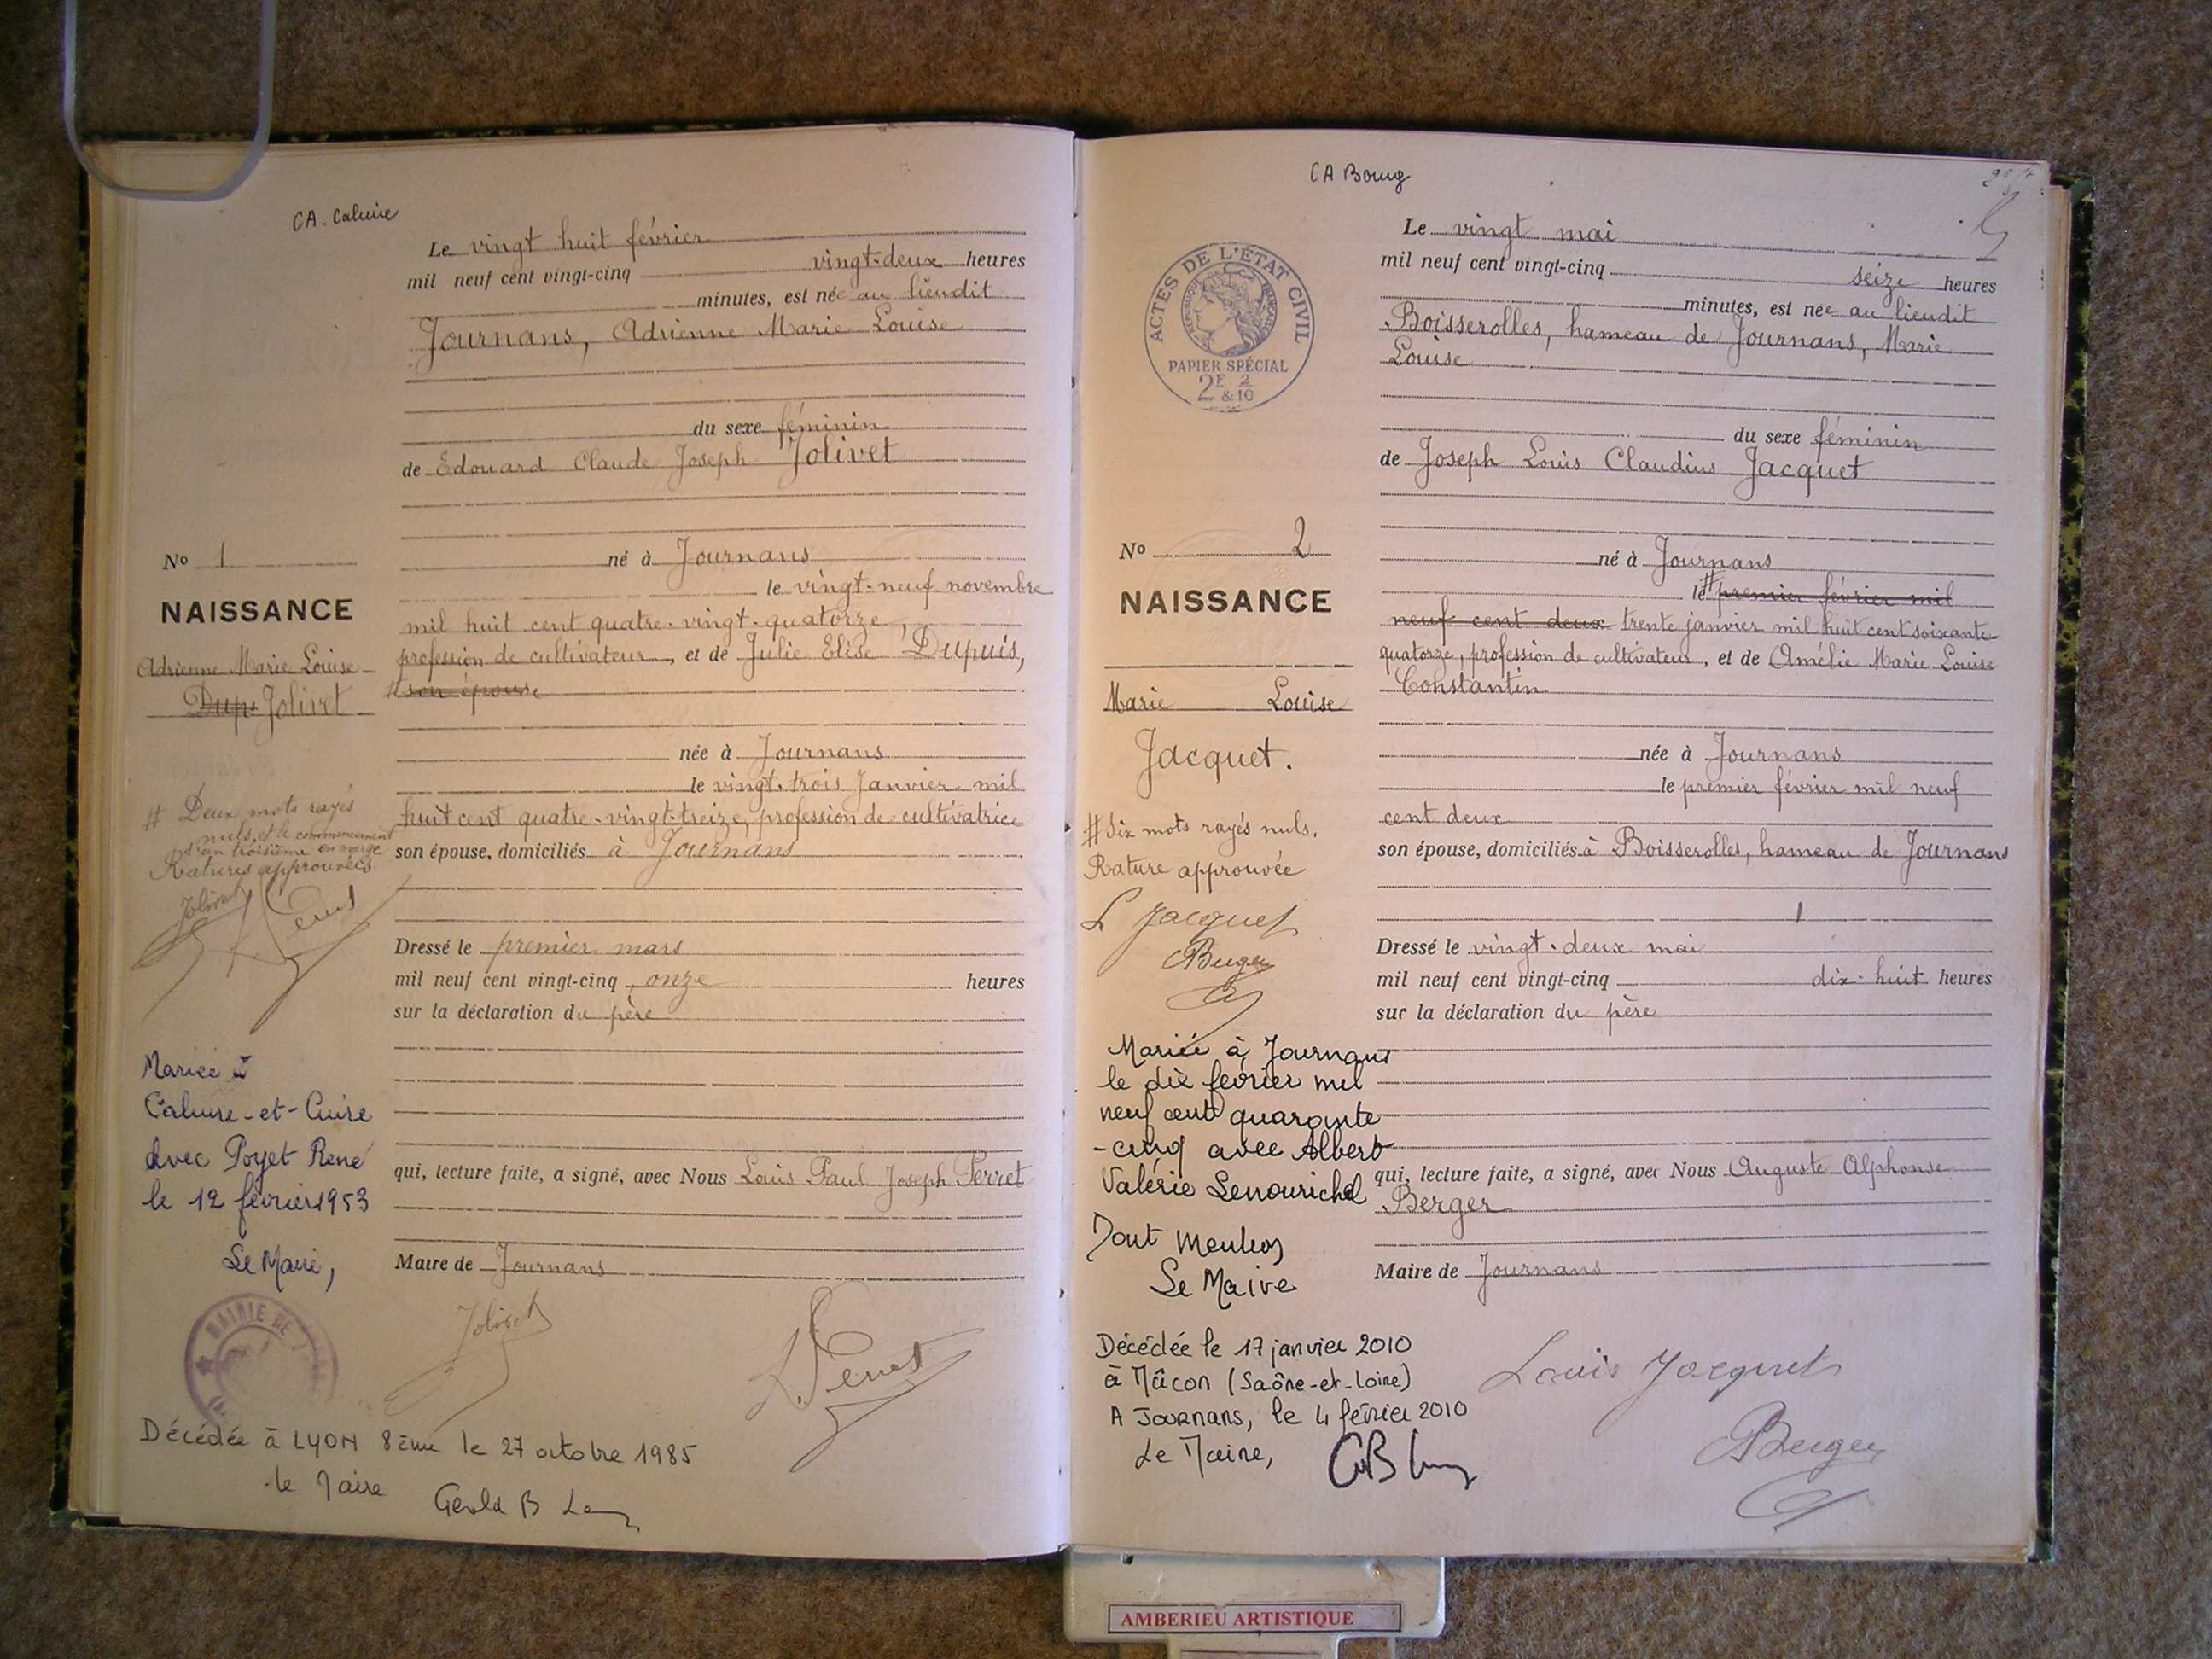 CA. Caluire
Le vingt huit février
mil neuf cent vingt-cinq vingt-deux heures
minutes, est née au lieudit
Journans, Adrienne Marie Louise
du sexe féminin
de Edouard Claude Joseph Jolivet
né à Journans
le vingt-neuf novembre
mil huit cent quatre-vingt-quatorze,
profession de cultivateur, et de Julie Elise Dupuis,
# son épouse
née à Journans
le vingt-trois Janvier mil
huit cent quatre-vingt-treize, profession de cultivatrice
son épouse, domiciliés à Journans
Dressé le premier mars
mil neuf cent vingt-cinq, onze heures
sur la déclaration du père
qui, lecture faite, a signé, avec Nous Louis Paul Joseph Perret
Maire de Journans
Jolivet
L. Perret
No 1
NAISSANCE
Adrienne Marie Louise
Dup Jolivet
# Deux mots rayés
nuls, et le commencement
d'un troisième en marge
Ratures approuvées
Jolivet
Perret
Mariée à
Caluire-et-Cuire
avec Poyet René
le 12 février 1953
Le Maire,
MAIRIE DE
Décédée à LYON 8ème le 27 octobre 1985
le Maire
CA Bourg
Le vingt mai
mil neuf cent vingt-cinq seize heures
minutes, est née au lieudit
Boisserolles, hameau de Journans, Marie
Louise
du sexe féminin
de Joseph Louis Claudius Jacquet
né à Journans
le # premier février mil
neuf cent deux trente janvier mil huit cent soixante-
quatorze, profession de cultivateur, et de Amélie Marie Louise
Constantin
née à Journans
le premier février mil neuf
cent deux
son épouse, domiciliés à Boisserolles, hameau de Journans
Dressé le vingt-deux mai
mil neuf cent vingt-cinq dix-huit heures
sur la déclaration du père
qui, lecture faite, a signé, avec Nous Auguste Alphonse
Berger
Maire de Journans
Louis Jacquet
Berger
ACTES DE L'ÉTAT CIVIL
RÉPUBLIQUE FRANÇAISE
PAPIER SPÉCIAL
2F 2
& 10
No 2
NAISSANCE
Marie Louise
Jacquet.
# Six mots rayés nuls.
Rature approuvée
L Jacquet
Berger
Mariée à Journans
le dix février mil
neuf cent quarante
-cinq avec Albert
Valérie
Dont mention
Le Maire
Décédée le 17 janvier 2010
à Mâcon (Saône-et-Loire)
A Journans, le 4 février 2010
Le Maire,
AMBERIEU ARTISTIQUE